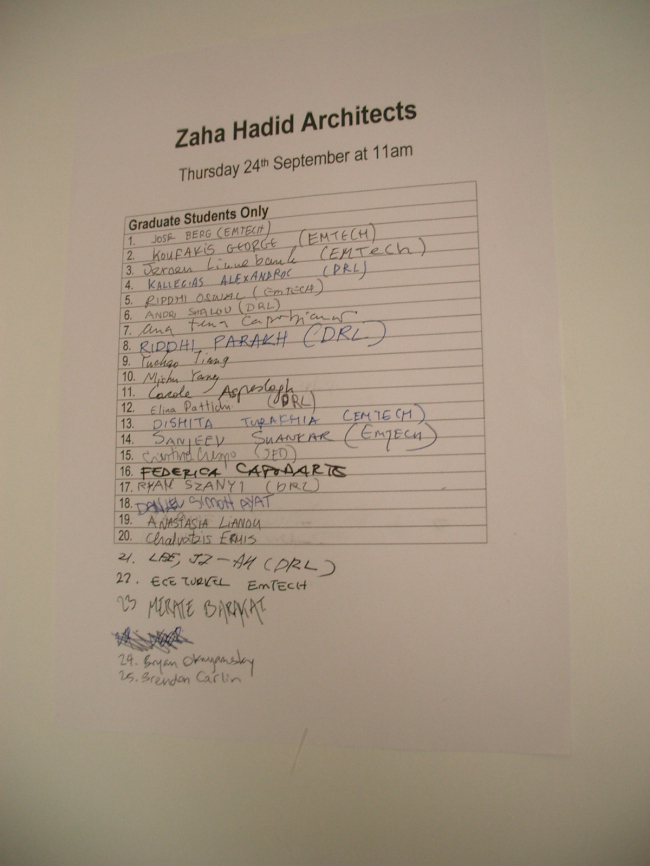 Zaha Hadid Architects
Thursday 24th September at 11am
Graduate Students Only
1. JOSE BERG (EMTECH)
2. KOUFAKIS GEORGE (EMTECH)
3. Jeroen Linnebank (EMTECH)
4. KALLEGIAS ALEXANDROC (DRL)
5. RIDDHI OSWAL (EMTECH)
6. ANDRI SHALOU (DRL)
7. ana
8. RIDDHI PARAKH (DRL)
9. Yuchao
10. Yang
11. Carole Aspeslagh
12. Elina Pattichi (DRL)
13. DISHITA TURAKHIA (EMTECH)
14. SANJEEV SHANKAR (EMTECH)
15. Cristina Crespo
16. FEDERICA CAPODARTE
17. RYAN SZANYI (DRL)
18. DANIEL SIMON AYAT
19. ANASTASIA LIANOU
20. Chalvatzis ERMIS
21. LEE, JZ-AH (DRL)
22. ECE TURKEL EMTECH
23 MERATE BARAKAT
24. Bryan Oknyansky
25. Brendon Carlin